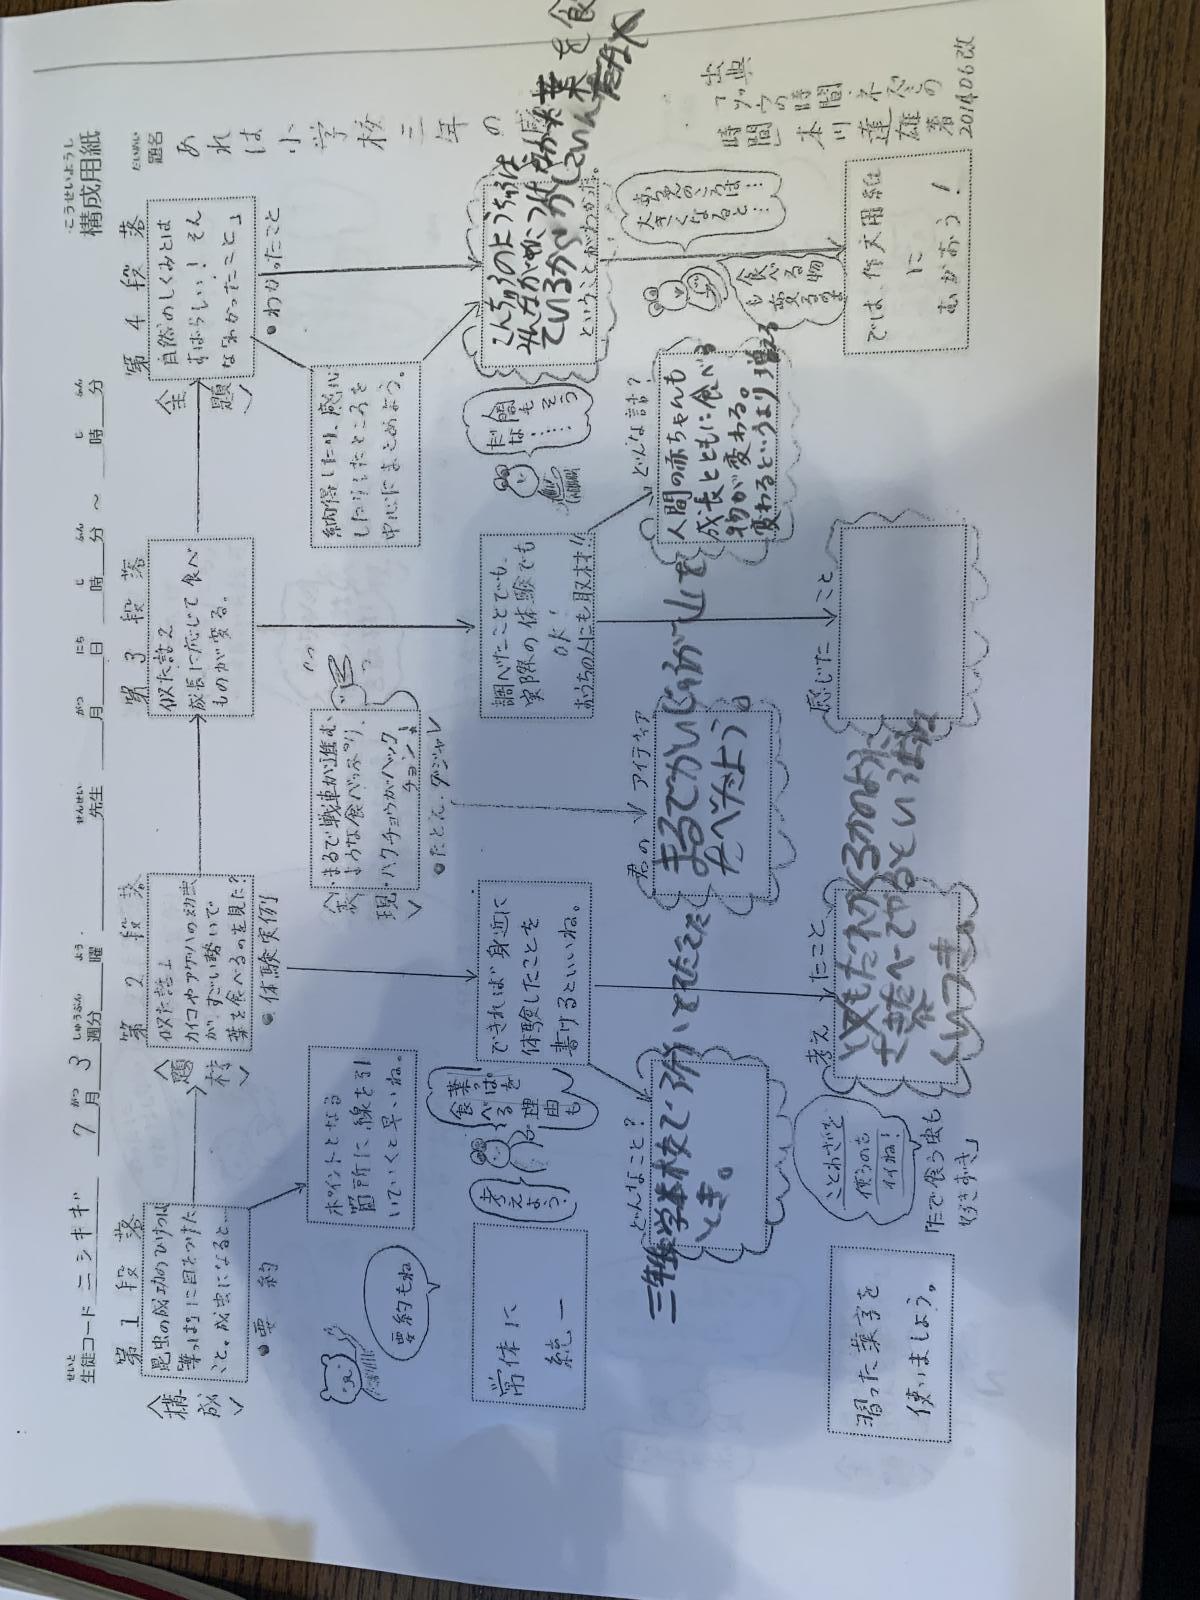 こうせいようし
構成用紙
せいと
生徒コード ニシキギ 7月 3週分 曜 先生 月 日 時 分 ～ 時 分
がつ しゅうぶん よう せんせい がつ にち じ ふん じ ふん
だいめい
題名
あれは小学校三年の
第1段落
〈構成〉
昆虫の成功のひけつは
「葉っぱ」に目をつけた
こと。成虫になると…
●要約
第2段落
〈題材〉
似た話1
カイコやアゲハの幼虫
が、すごい勢いで
葉を食べるのを見た?
●体験実例
第3段落
似た話2
成長に応じて食べ
ものが変る。
第4段落
〈主題〉
自然のしくみとは
すばらしい! そん
な「わかったこと」
●わかったこと
要約もね
ポイントとなる
箇所に線を引
いていくと早いね。
〈表現〉
・まるで戦車が進む
ような食べっぷり。
・ハクチョウがハック
チョン!
●たとえ、ダジャレ
納得したり、感心
したりしたところを
中心にまとめよう。
常体に
統一
葉っぱを
食べる
理由も
考え
よう?
できれば身近に
体験したことを
書けるといいね。
調べたことでも、
実際の体験でも
OK!
おうちの人にも取材!!
人間も
そう
だな……
ということがわかった。
どんなこと?
三年生学本校で
とき。
君のアイディア
まるでかいじゅうが山を
たべたよう。
どんな話?
人間の赤ちゃんも
成長とともに食べる
物が変わる。
変わるというより増える
赤ちゃんのころは…
大きくなると…
食べる物
も変る
のよ
習った漢字を
使いましょう。
ことわざを
使うのも
イイね!
「たで食う虫も
好きずき」
考えたこと
くいつき。
感じたこと
では、作文用紙
に
むかおう!
出典
「ゾウの時間 ネズミの
時間」 本川達雄 著
2014.06改